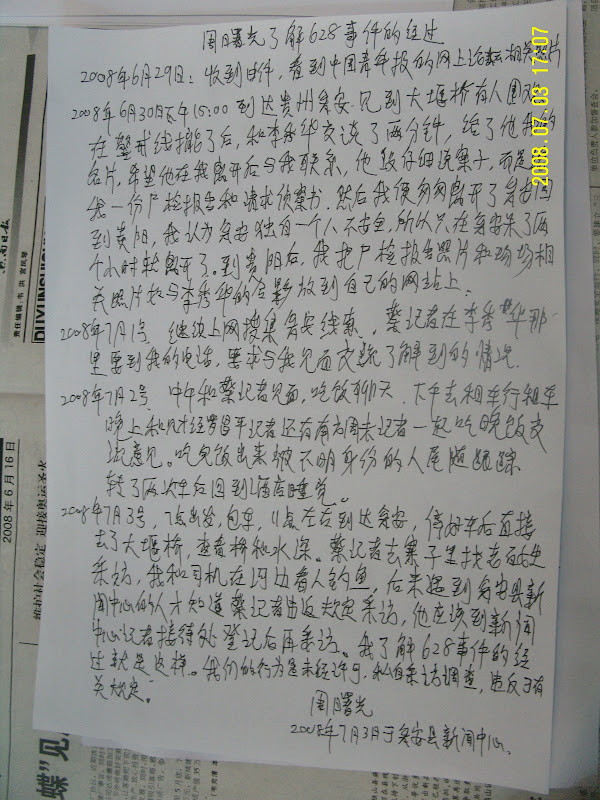 周曙光了解628事件的经过
2008年6月29日：收到邮件，看到中国青年报的网上论坛相关照片
2008年6月30日下午15:00到达贵州瓮安，见到大堰桥有人围观
在警戒线撤了后，和李秀华交谈了两分钟，给了他我的
名片，希望他在我离开后与我联系，他没仔细说案子，而是
我一份尸检报告和请求侦察书。然后我便匆匆离开了瓮安回
到贵阳，我认为瓮安独自一个人不安全，所以只在瓮安呆了两
个小时就离开了。到贵阳后，我把尸检报告照片和现场相
关照片和与李秀华的合影放到自己的网站上。
2008年7月1号 继续上网搜集瓮安线索，蔡记者在李秀华那
里要到我的电话，要求与我见面交流了解到的情况
2008年7月2号 中午和蔡记者见面，吃饭聊天，下午去租车行租车
晚上和财经罗昌平记者还有南方周末记者一起吃晚饭交
流意见。吃完饭出来被不明身份的人尾随跟踪
转了两次车后回到酒店睡觉。
2008年7月3号，7点出发，包车，11点左右到达瓮安，停好车后直接
去了大堰桥，查看桥和水深。蔡记者去寨子里找老百姓
采访，我和司机在河边看人钓鱼，后来遇到瓮安县新
闻中心的人才知道蔡记者违反规定采访，他应该到新闻
中心记者接待处登记后再采访。我了解628事件的经
过就是这样。我们的行为是未经许可，私自采访调查，违反了有
关规定。
周曙光
2008年7月3日于瓮安县新闻中心。
2008.07.03 17:07
责任编辑：韦洪
DUYUNSHI
2008年6月16日
维护社会稳定 迎接奥运圣火
蝶”见